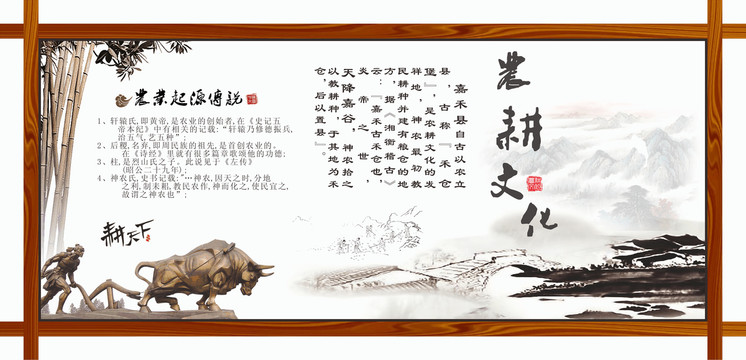 農耕文化
嘉禾县自古以农立
县，古称『禾仓
堡』，是农耕文化的发
祥地，神农最初教
民耕种并建有粮仓的地
方，据《湘衡稽古》
云：『嘉禾古禾仓也，
炎帝之世，
天降嘉谷，神农拾之
以教耕种，于其地为禾
仓，后以置县』。
農業起源傳說
1、轩辕氏,即黄帝,是农业的创始者,在《史记五
帝本纪》中有相关的记载:“轩辕乃修德振兵,
治五气,艺五种”;
2、后稷,名弃,即周民族的祖先,是首创农业的。
在《诗经》里就有很多篇章歌颂他的功德;
3、柱,是烈山氏之子。此说见于《左传》
(昭公二十九年);
4、神农氏,史书记载:“…神农,因天之时,分地
之利,制耒耜,教民农作,神而化之,使民宜之,
故谓之神农也”;
耕天下